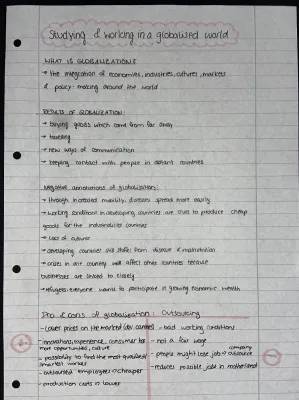 Studying & working in a globalised world
WHAT IS GLOBALIZATION?
→ the integration of economies, industries, cultures, markets
& policy-making around the world
RESULTS OF GLOBALIZATION:
→ buying goods which come from far away
→ traveling
→ new ways of communication
→ keeping contact with people in distant countries
Negative annotations of globalisation:
→ through increased mobility, diseases spread more easily
→ working conditions in developing countries are to produce cheap
goods for the industrialized countries
→ loss of cultures
→ developing countries still suffer from disease & malnutrition
→ crises in one country will affect other countries because
businesses are linked to closely
→ refugees: everyone wants to participate in growing economic wealth
Pro & cons of globalisation: Outsourcing
- Lower prices on the market
- bad working conditions
- innovations, experience, consumer has
more opportunities, culture
- not a fair wage
- possibility to find the most qualified/
smartest workers
- people might lose job if company outsource
- outsourced employees = cheaper
- reduces possible job in motherland
- production costs is lower